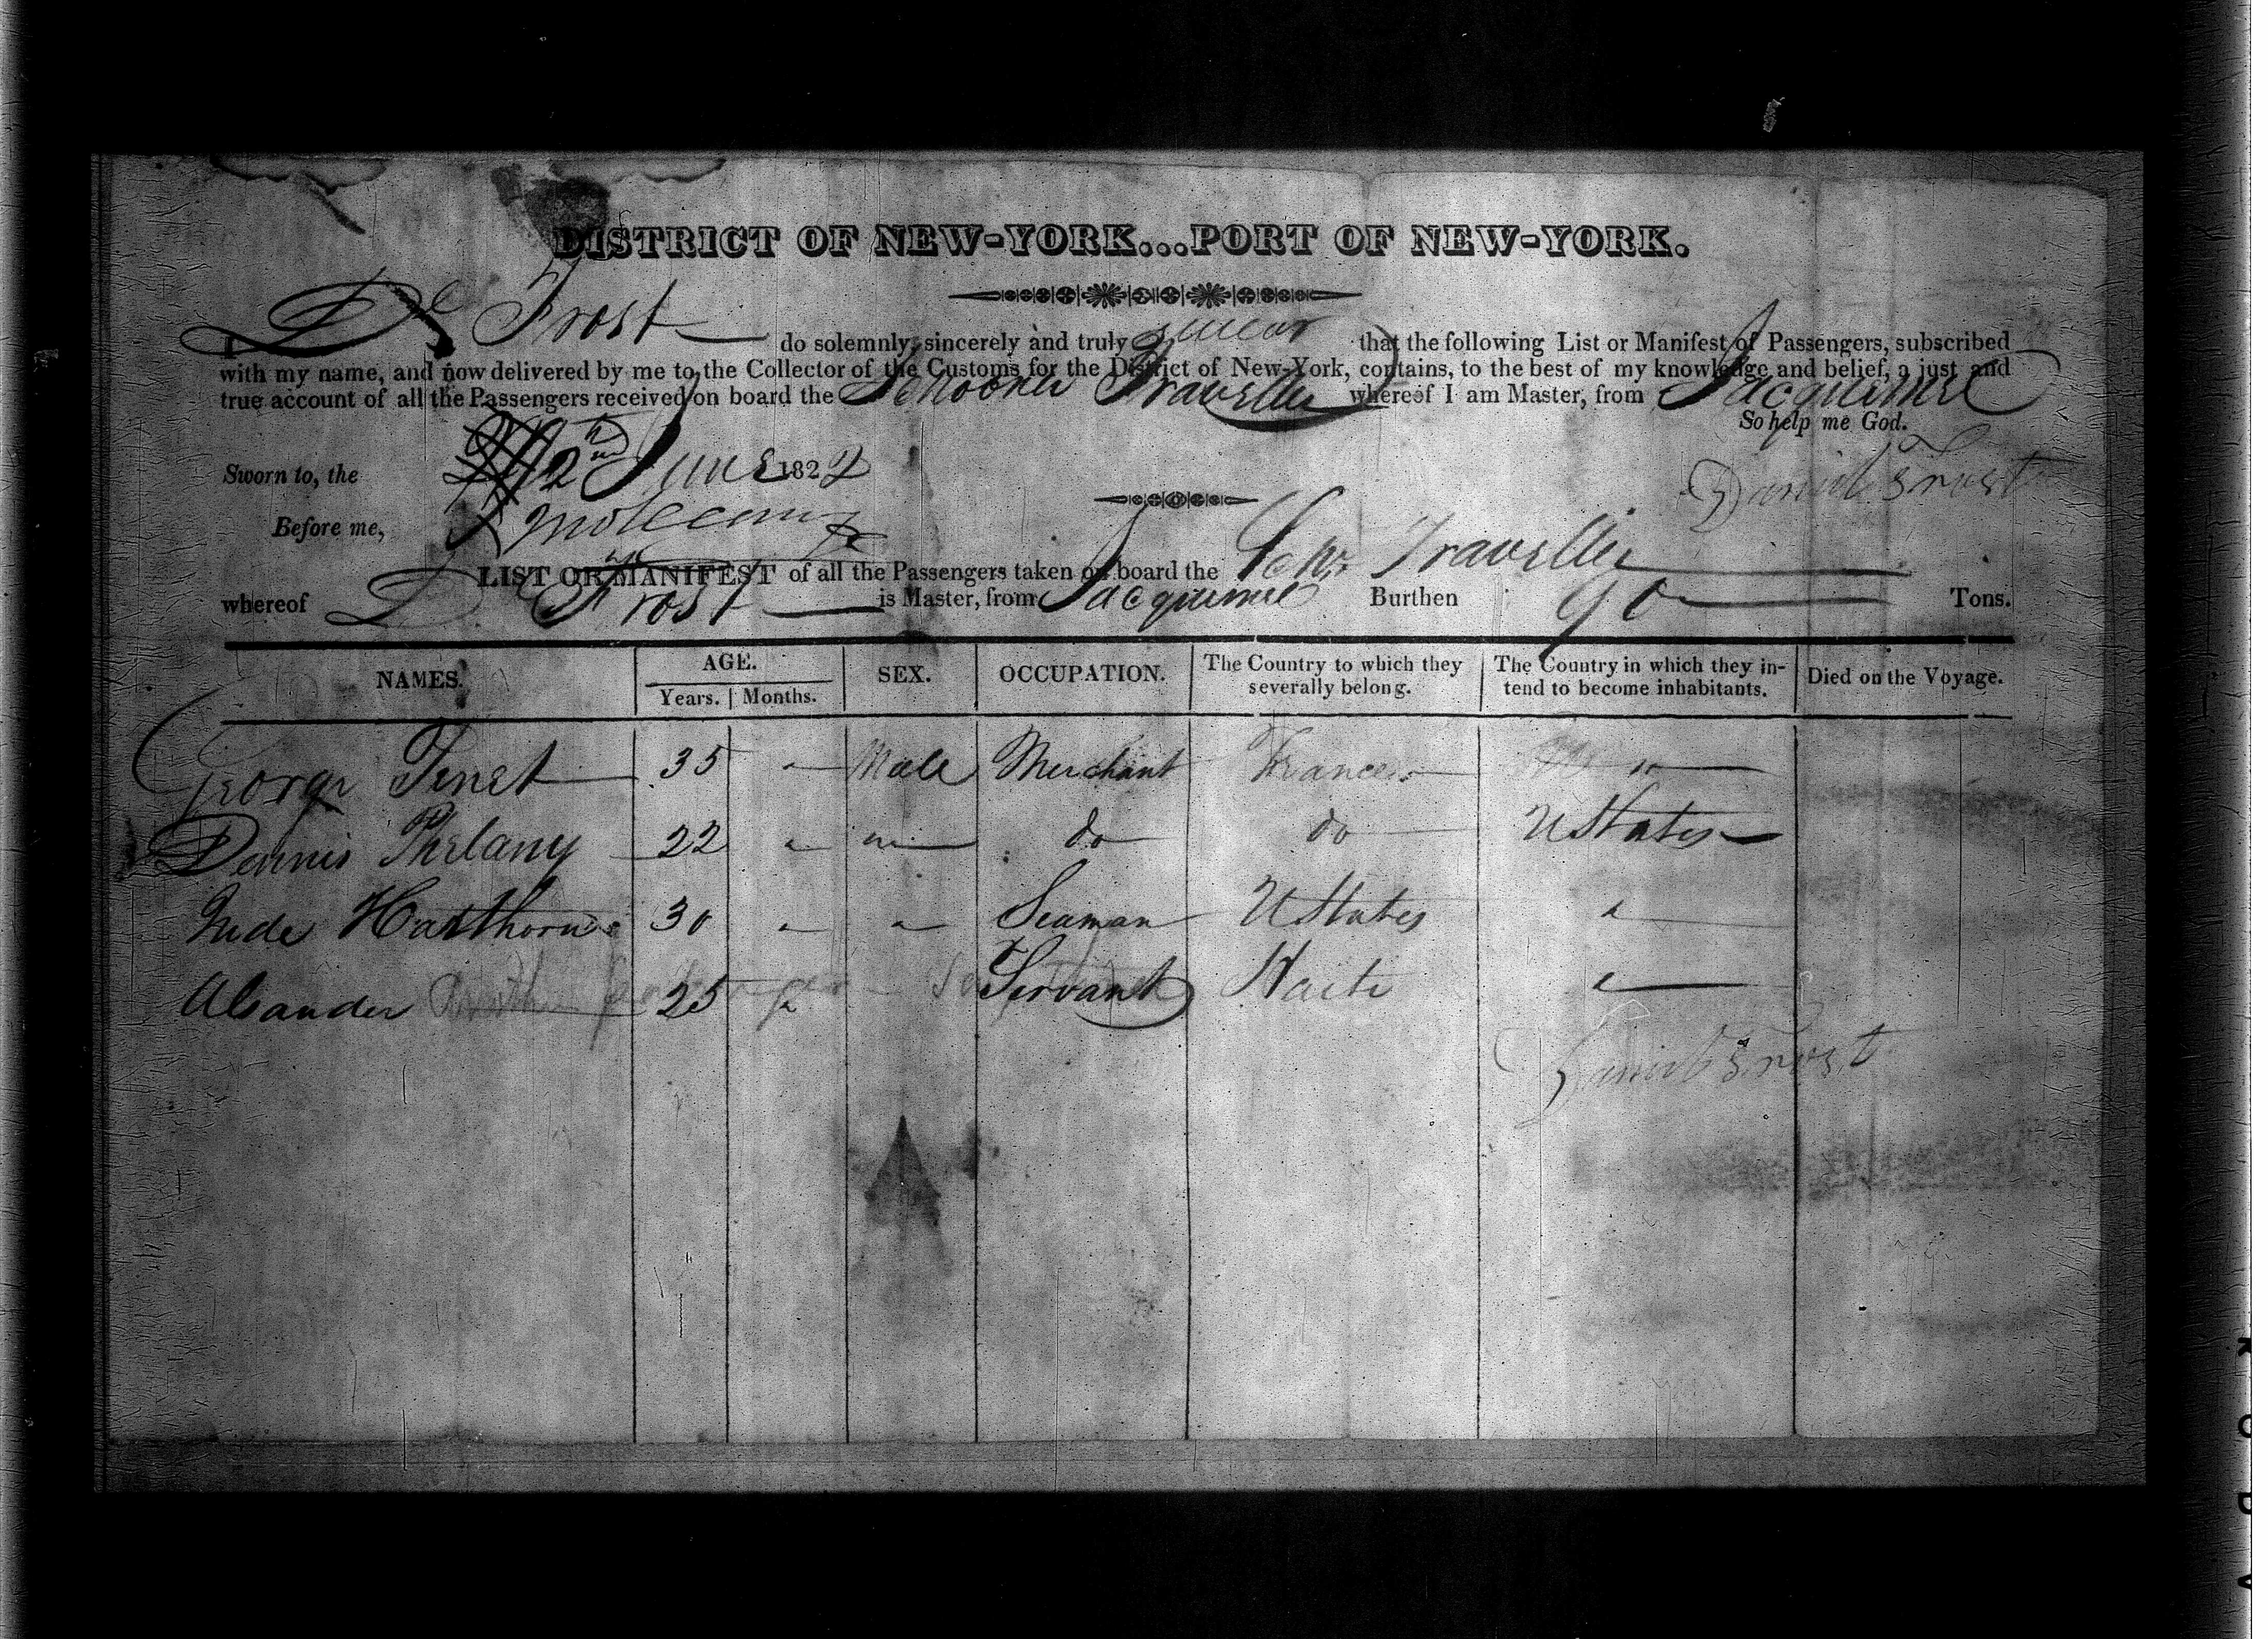 DISTRICT OF NEW-YORK...PORT OF NEW-YORK.
I D Frost do solemnly, sincerely and truly swear that the following List or Manifest of Passengers, subscribed
with my name, and now delivered by me to the Collector of the Customs for the District of New-York, contains, to the best of my knowledge and belief, a just and
true account of all the Passengers received on board the Schooner Traveller whereof I am Master, from Jacquemel
So help me God.
Sworn to, the 2nd June 1822
Daniel Frost
Before me,
LIST OR MANIFEST of all the Passengers taken on board the Schr Traveller
whereof D. Frost is Master, from Jacquemel Burthen 90 Tons.
NAMES. AGE. SEX. OCCUPATION. The Country to which they severally belong. The Country in which they intend to become inhabitants. Died on the Voyage.
Years. Months.
George 35 " Male Merchant France "
Dennis Phelany 22 " " do do UStates
Jude Hawthorne 30 " " Seaman UStates "
Alsander 25 " Servant Haiti "
Daniel Frost